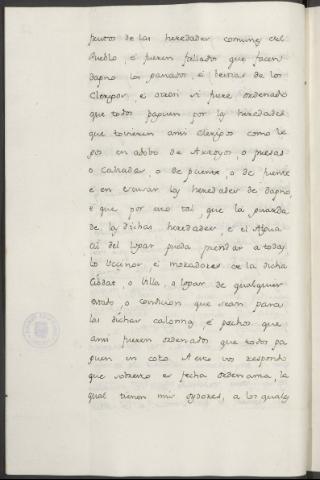 frutos de las heredades comunes del
Pueblo, e fueren fallados que facen
dapno los ganados, e bestias de los
Clerigos, e otrosi si fuere ordenado
que todos paguen por las heredades
que tovieren ansi Clerigos como le
gos en adobo de Arroyos, o presas
o calzadas, o de puente, o de fuente
e en escusar las heredades de dapno,
e que por eso tal que la guarda
de las dichas heredades, e el Algua
cil del lugar pueda prendar a todos
los Vecinos, e moradores de la dicha
Cibdat, o Villa, o lugar de qualquier
estado, o condicion que sean para
las dichas caloñas, e pechos que
ansi fueren ordenados que todos pa
guen en coto A esto vos respondo
que sobresto es fecha ordenanza, la
qual tienen mis oydores, a los quales